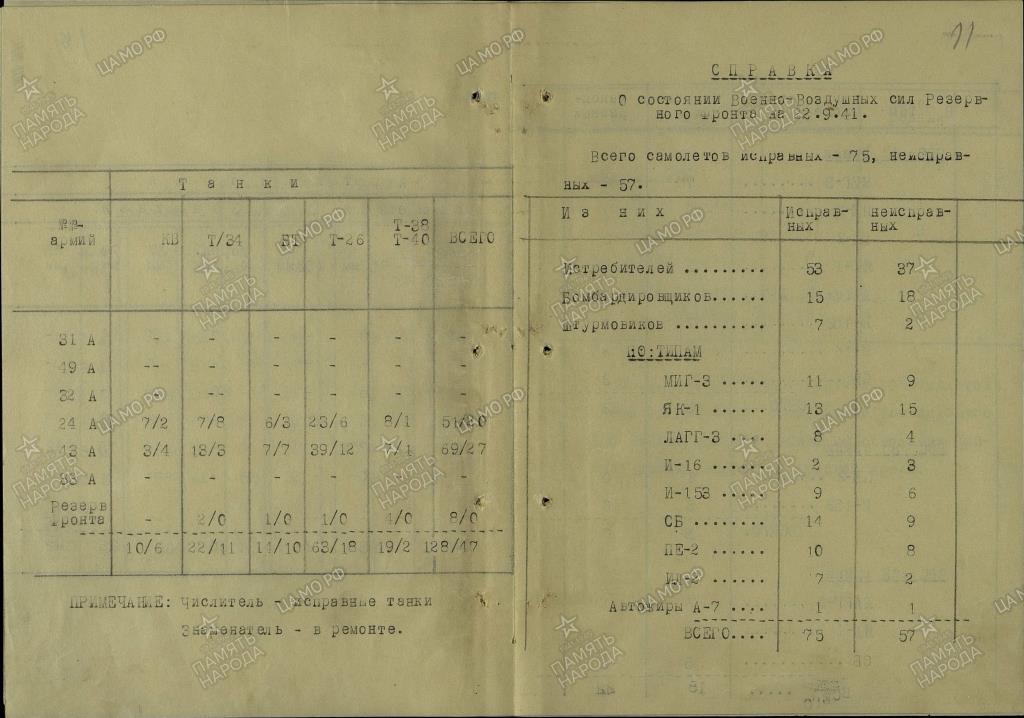 Танки
№№ армий КВ Т/34 БТ Т-26 Т-38 Т-40 ВСЕГО
31 А - - - - - -
49 А -- - - - - -
32 А - -- - - - -
24 А 7/2 7/8 6/3 23/6 8/1 51/20
43 А 3/4 13/3 7/7 39/12 7/1 69/27
33 А - - - - - -
Резерв фронта - 2/0 1/0 1/0 4/0 8/0
10/6 22/11 14/10 63/18 19/2 128/47
ПРИМЕЧАНИЕ: Числитель - исправные танки
Знаменатель - в ремонте.
11
СПРАВКА
О состоянии Военно-Воздушных сил Резерв-
ного фронта на 22.9.41.
Всего самолетов исправных - 75, неисправ-
ных - 57.
Из них Исправ- неисправ-
ных ных
Истребителей ......... 53 37
Бомбардировщиков...... 15 18
Штурмовиков .......... 7 2
ПО:ТИПАМ
МИГ-3 ..... 11 9
ЯК-1 ...... 13 15
ЛАГГ-3 .... 8 4
И-16 ...... 2 3
И-153 ..... 9 6
СБ ........ 14 9
ПЕ-2 ...... 10 8
ИЛ-2 ...... 7 2
Автожиры А-7 .... 1 1
ВСЕГО.... 75 57
ЦАМО.РФ
ПАМЯТЬ НАРОДА